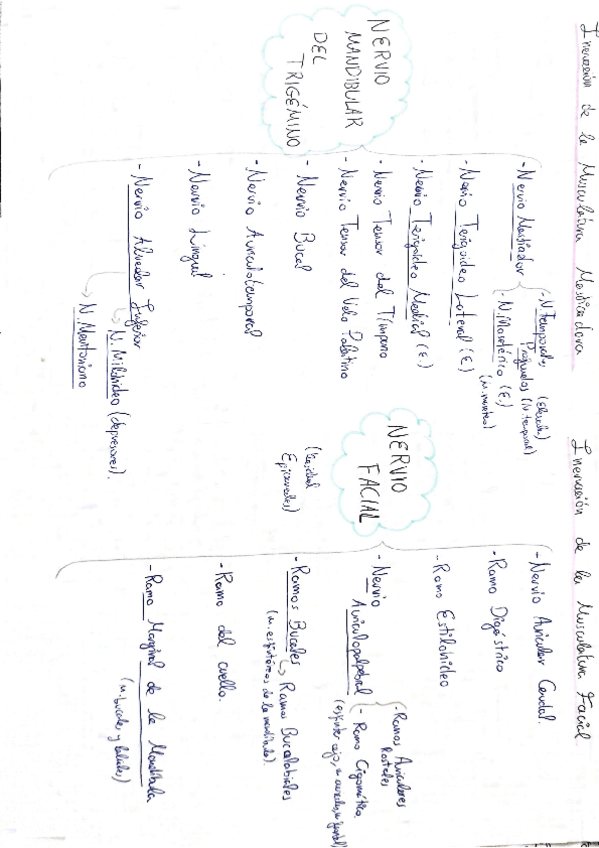 Inervación de la Musculatura Masticadora
NERVIO
MANDIBULAR
DEL
TRIGÉMINO
- Nervio Masticador
- N. Temporales
Profundos (N. temporal)
(Elevador)
- N. Masetérico (E.)
- Nervio Terigoideo Lateral (E.)
- Nervio Terigoideo Medial (E.)
- Nervio Tensor del Tímpano
- Nervio Tensor del Velo Palatino
- Nervio Bucal
- Nervio Auriculotemporal
- Nervio Lingual
- Nervio Alveolar Inferior
N. Milohideo (depresores).
N. Mentoniano
Inervación de la Musculatura Facial
NERVIO
FACIAL
- Nervio Auricular Caudal.
- Ramo Digástrico
- Ramo Estilohideo
- Nervio
Auriculopalpebral
- Ramos Auriculares
Rostrales
- Ramo Cigomático
- Ramos Bucales
Ramos Bucolabiales
- Ramo del cuello.
- Ramo Marginal de la Mandíbula
(m. bucales y labiales)